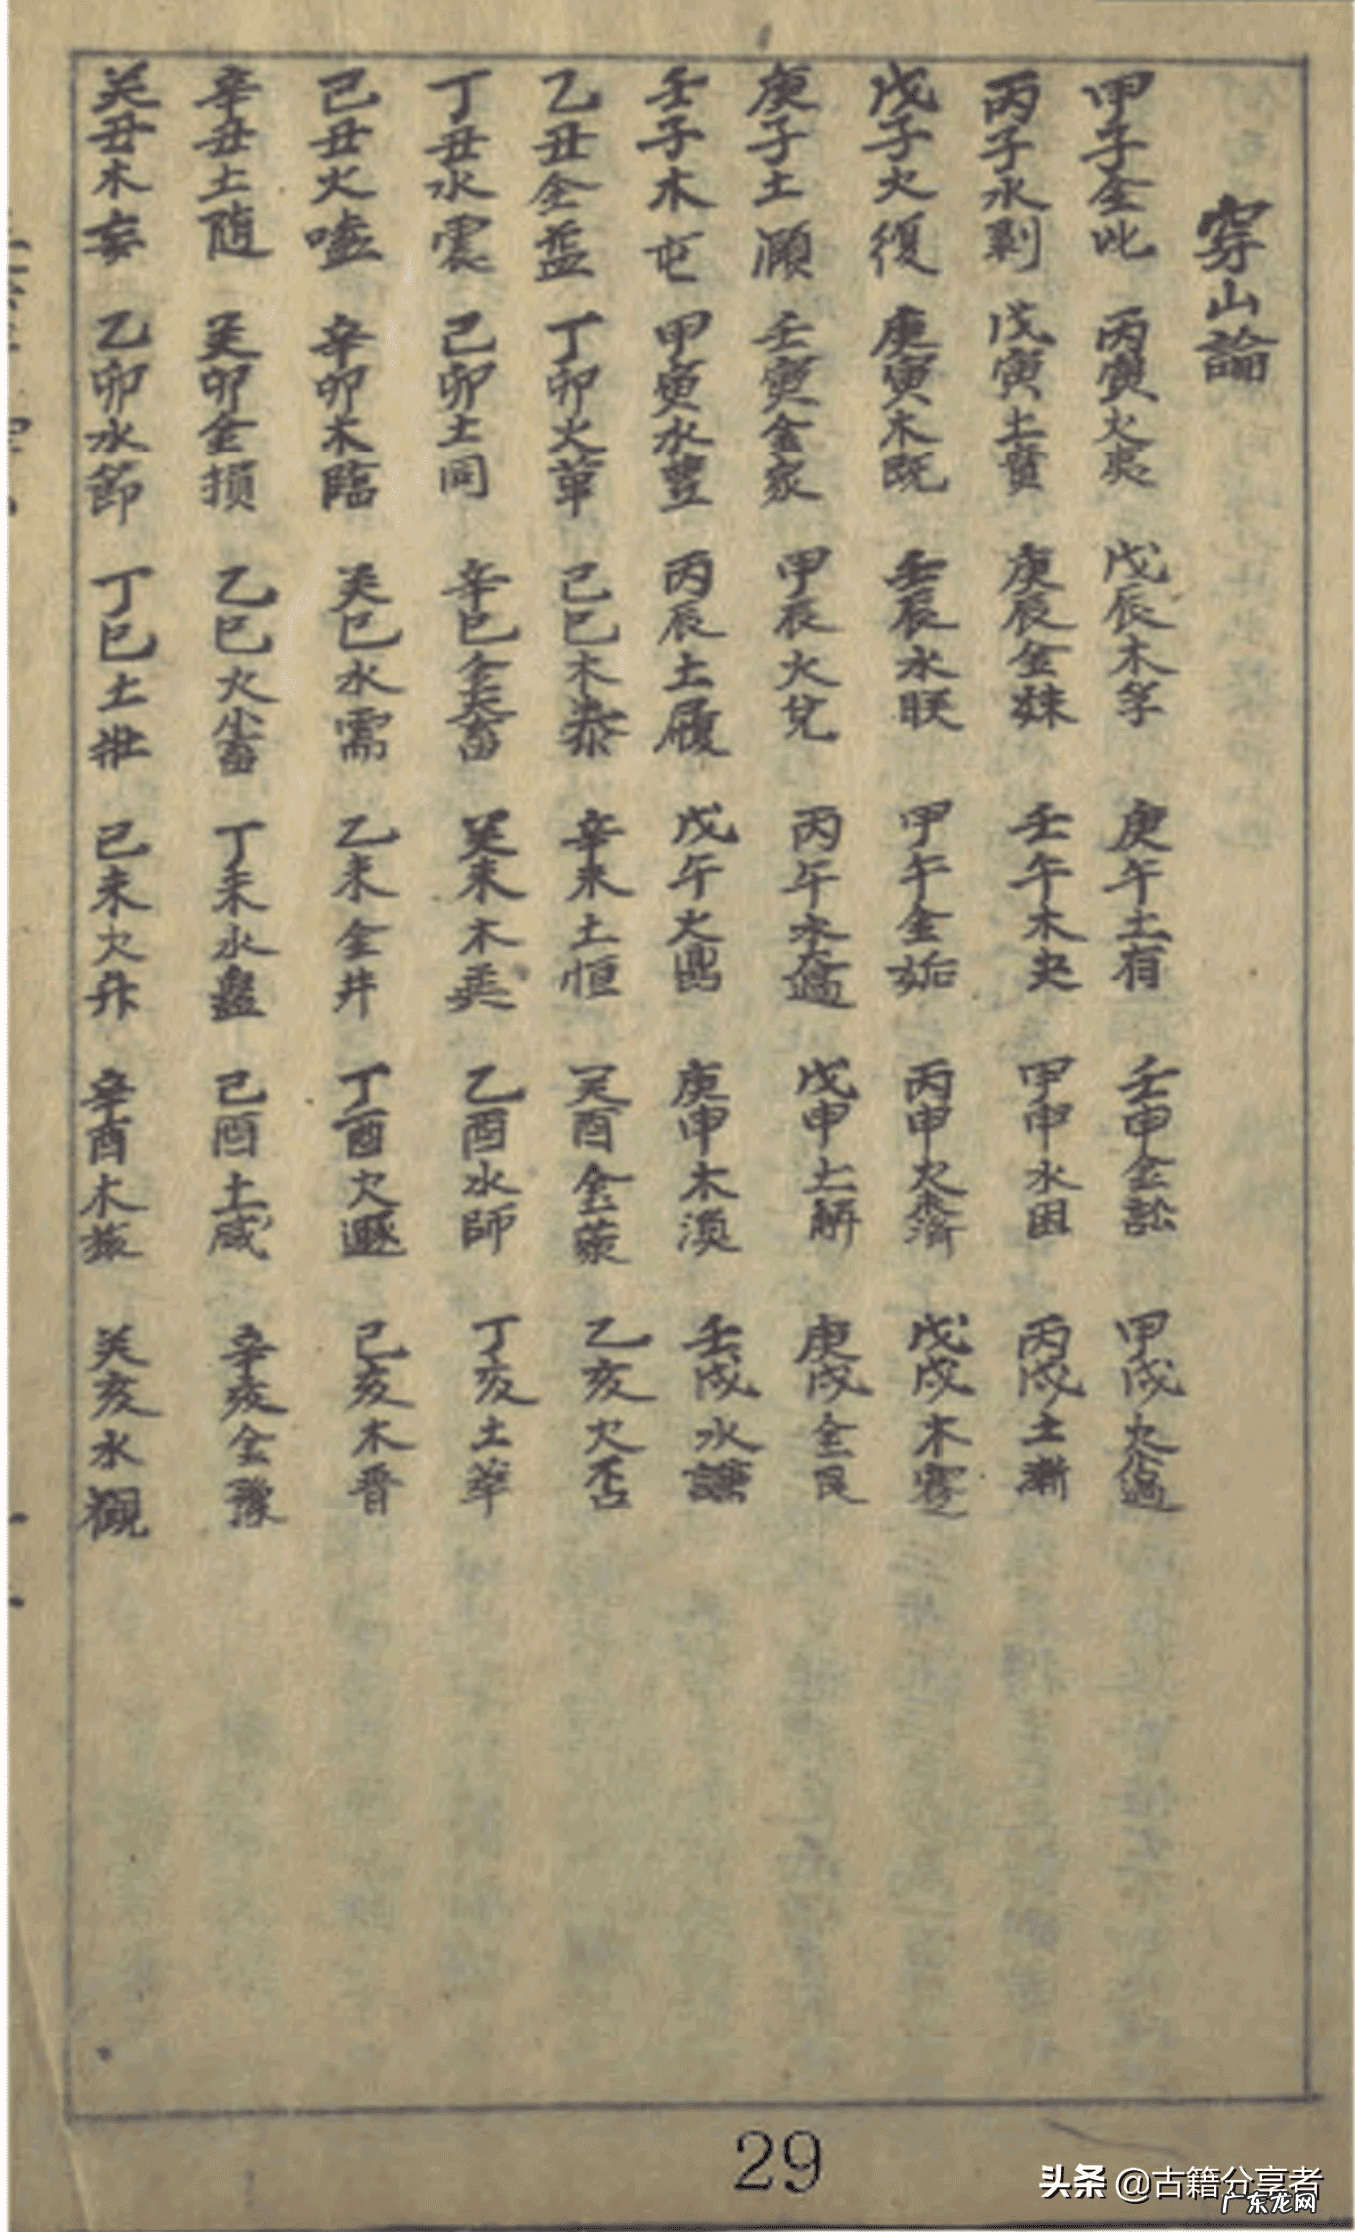 穿山論
甲子金比 丙寅火夷 戊辰木孚 庚午土有 壬申金訟 甲戌火小過
丙子水剝 戊寅土賁 庚辰金妹 壬午木夬 甲申水困 丙戌土漸
戊子火復 庚寅木既 壬辰水睽 甲午金姤 丙申火未濟 戊戌木蹇
庚子土頤 壬寅金家 甲辰火兌 丙午水大過 戊申土解 庚戌金艮
壬子木屯 甲寅水豐 丙辰土履 戊午火鼎 庚申木渙 壬戌水謙
乙丑金益 丁卯火革 己巳木泰 辛未土恒 癸酉金蒙 乙亥火否
丁丑水震 己卯土同 辛巳金大畜 癸未木巽 乙酉水師 丁亥土萃
己丑火嗑 辛卯木臨 癸巳水需 乙未金井 丁酉火遯 己亥木晋
辛丑土随 癸卯金損 乙巳火小畜 丁未水蠱 己酉土咸 辛亥金豫
癸丑木妄 乙卯水節 丁巳土壯 己未火升 辛酉木旅 癸亥水觀
29
头条 @古籍分享者
广东龙网